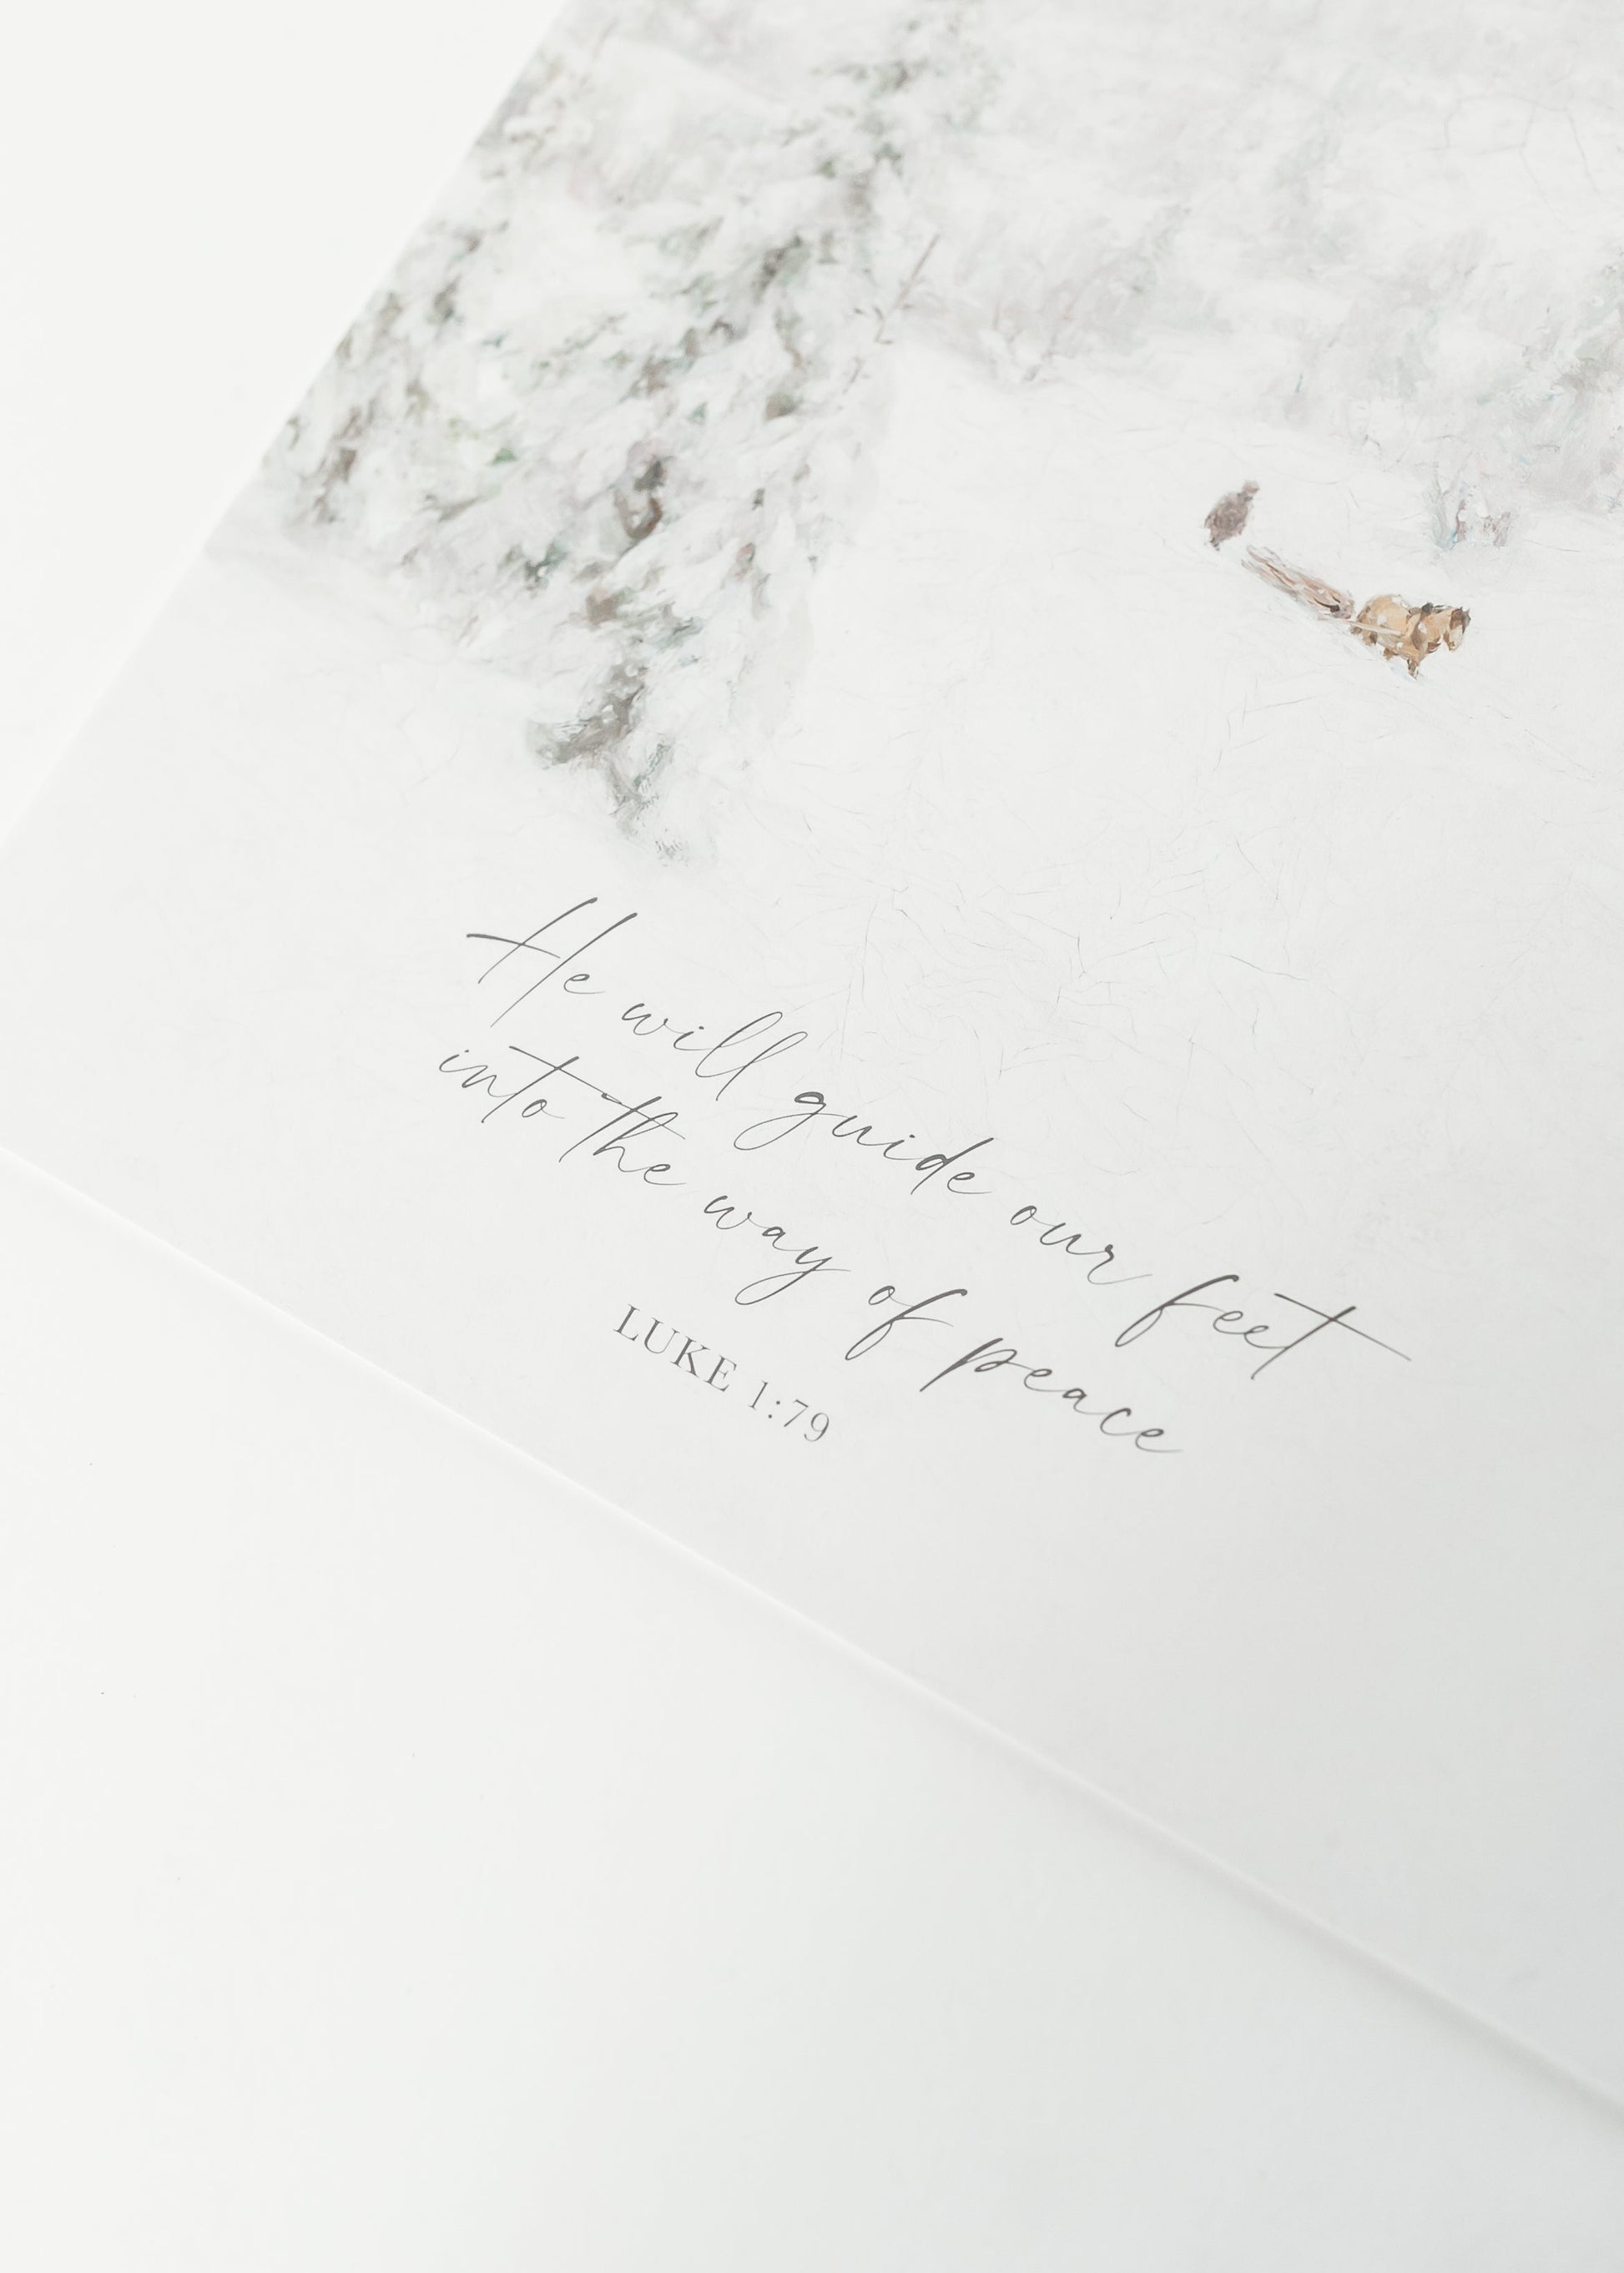 He will guide our feet
into the way of peace
LUKE 1:79